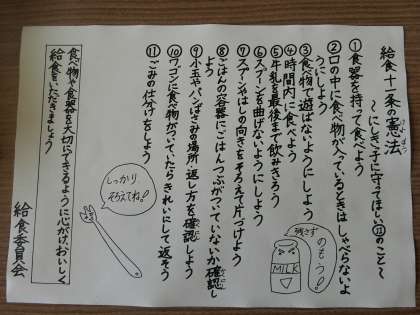 給食十一条の憲法
〜にしきっ子に守ってほしい⑪のこと〜
①食器を持って食べよう
②口の中に食べ物が入っているときはしゃべらないよ
うにしよう
③食べ物で遊ばないようにしよう
④時間内に食べよう
⑤牛乳を最後まで飲みきろう
⑥スプーンを曲げないようにしよう
⑦スプーンやはしの向きをそろえて片づけよう
⑧ごはんの容器にごはんつぶがついていないか確認し
よう
⑨小玉やパンばさみの場所、返し方を確認しよう
⑩ワゴンに食べ物がついていたらきれいにして返そう
⑪ごみの仕分けをしよう
食べ物や食器を大切にできるように心がけ、おいしく
給食をいただきましょう
給食委員会
しっかり
そろえてね!
残さず
のもう!
MILK